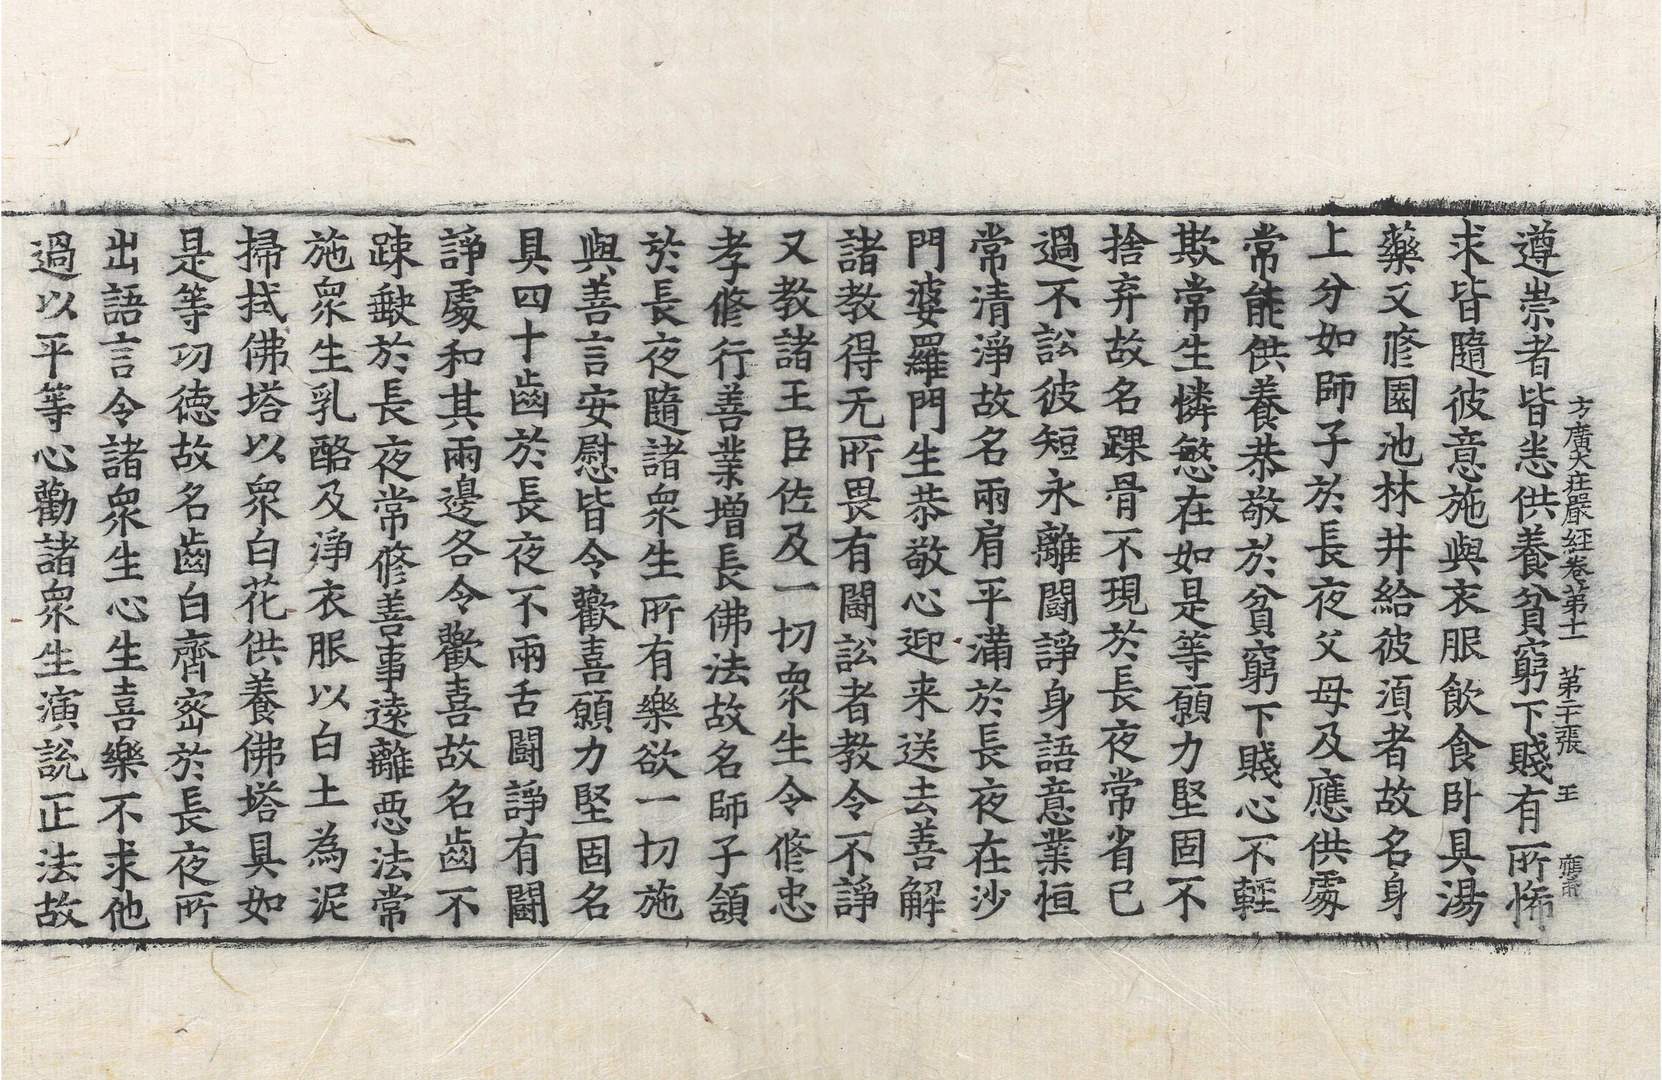 方廣大莊嚴經卷第十一　第二十張　王
遵崇者皆悉供養貧窮下賤有所怖
求皆隨彼意施與衣服飲食卧具湯
藥又修園池林井給彼須者故名身
上分如師子於長夜父母及應供處
常能供養恭敬於貧窮下賤心不輕
欺常生憐愍在如是等願力堅固不
捨弃故名踝骨不現於長夜常省己
過不訟彼短永離鬪諍身語意業恒
常清淨故名兩肩平滿於長夜在沙
門婆羅門生恭敬心迎来送去善解
諸教得无所畏有鬪訟者教令不諍
又教諸王臣佐及一切衆生令修忠
孝修行善業增長佛法故名師子頷
於長夜隨諸衆生所有樂欲一切施
與善言安慰皆令歡喜願力堅固名
具四十齒於長夜不兩舌鬪諍有鬪
諍處和其兩邊各令歡喜故名齒不
踈缺於長夜常修善事遠離惡法常
施衆生乳酪及淨衣服以白土為泥
掃拭佛塔以衆白花供養佛塔具如
是等功德故名齒白齊密於長夜所
出語言令諸衆生心生喜樂不求他
過以平等心勸諸衆生演說正法故